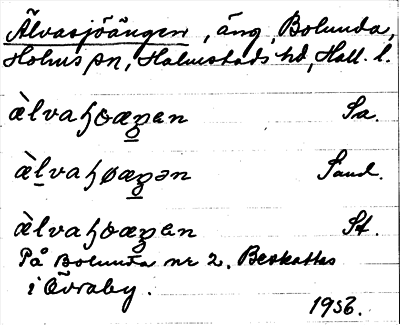 Älvasjöängen, äng, Bolunda,
Holms sn, Halmstads hd, Hall. l.
Sa.
Sand.
St.
På Bolunda nr 2. Beskattas
i Övraby.
1956.